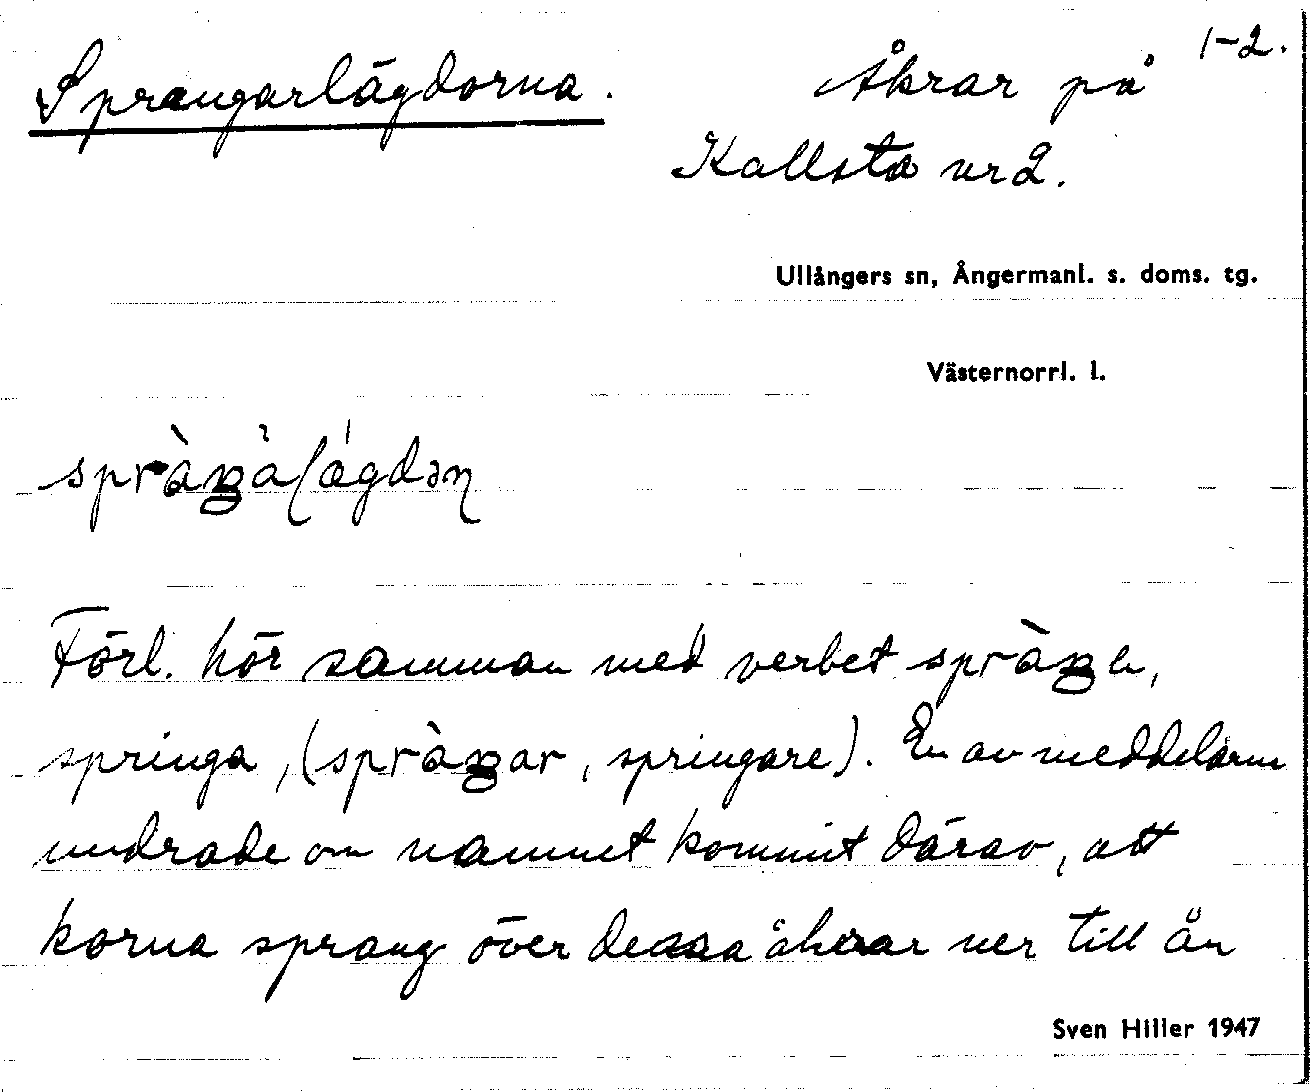 1-2.
Sprangarlägdorna. Åkrar på
Kallsta nr 2.
Ullångers sn, Ångermanl. s. doms. tg.
Västernorrl. l.
Förl. hör samman med verbet
springa, ( , springare). En av meddelarna
undrade om namnet kommit därav, att
korna sprang över dessa åkrar ner till ån
Sven Hiller 1947